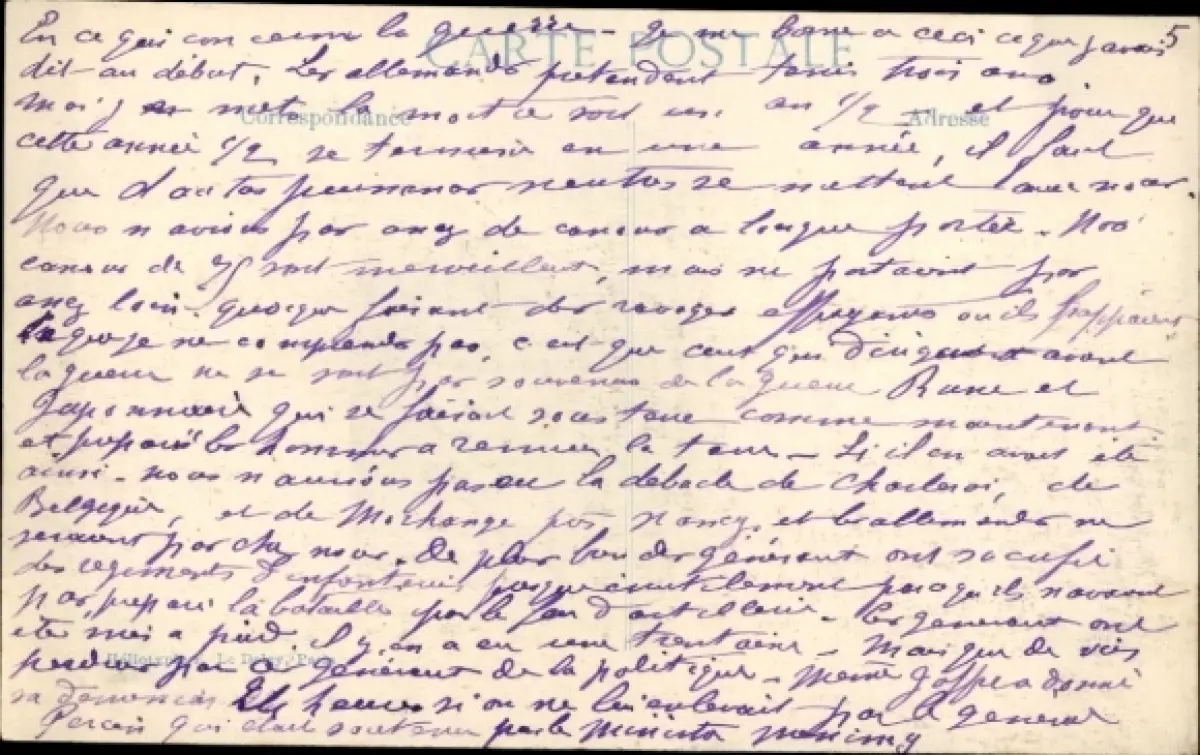 En ce qui concerne la guerre - Je me borne a ceci ce que j'avais 5
CARTE POSTALE
dit au début. Les allemands pretendent tenir trois ans
moi j'en mets la moitié soit un an 1/2 - et pour que
Correspondance Adresse
cette année 1/2 se termine en une année, il faut
que d'autres puissances neutres se mettent avec nous.
Nous n'avions pas assez de canons a longue portée. Nos
canons de 75 sont merveilleux, mais ne portaient pas
assez loin. quoique faisant des ravages effrayants ou ils frappaient
ce que je ne comprends pas, c'est que ceux qui dirigeaient avant
la guerre ne se sont pas souvenus de la guerre Russe et
Japonnaise qui se faisait sous terre comme maintenant
et préparé les hommes a remuer la terre - Si il en avait été
ainsi - nous n'aurions pas eu la debacle de Charleroi, de
Belgique, et de Morhange près Nancy, et les allemands ne
seraient pas chez nous. De plus bien des généraux ont sacrifié
des regiments d'infanterie presque inutilement parce qu'ils n'avaient
pas préparé la bataille par le feu d'artillerie - les generaux ont
été mis a pied il y en a eu une trentaine -
perdues par ce généraux de la politique - meme Joffre a donné
sa demission heures si on ne lui enlevait pas le general
qui etait soutenu par le Ministre